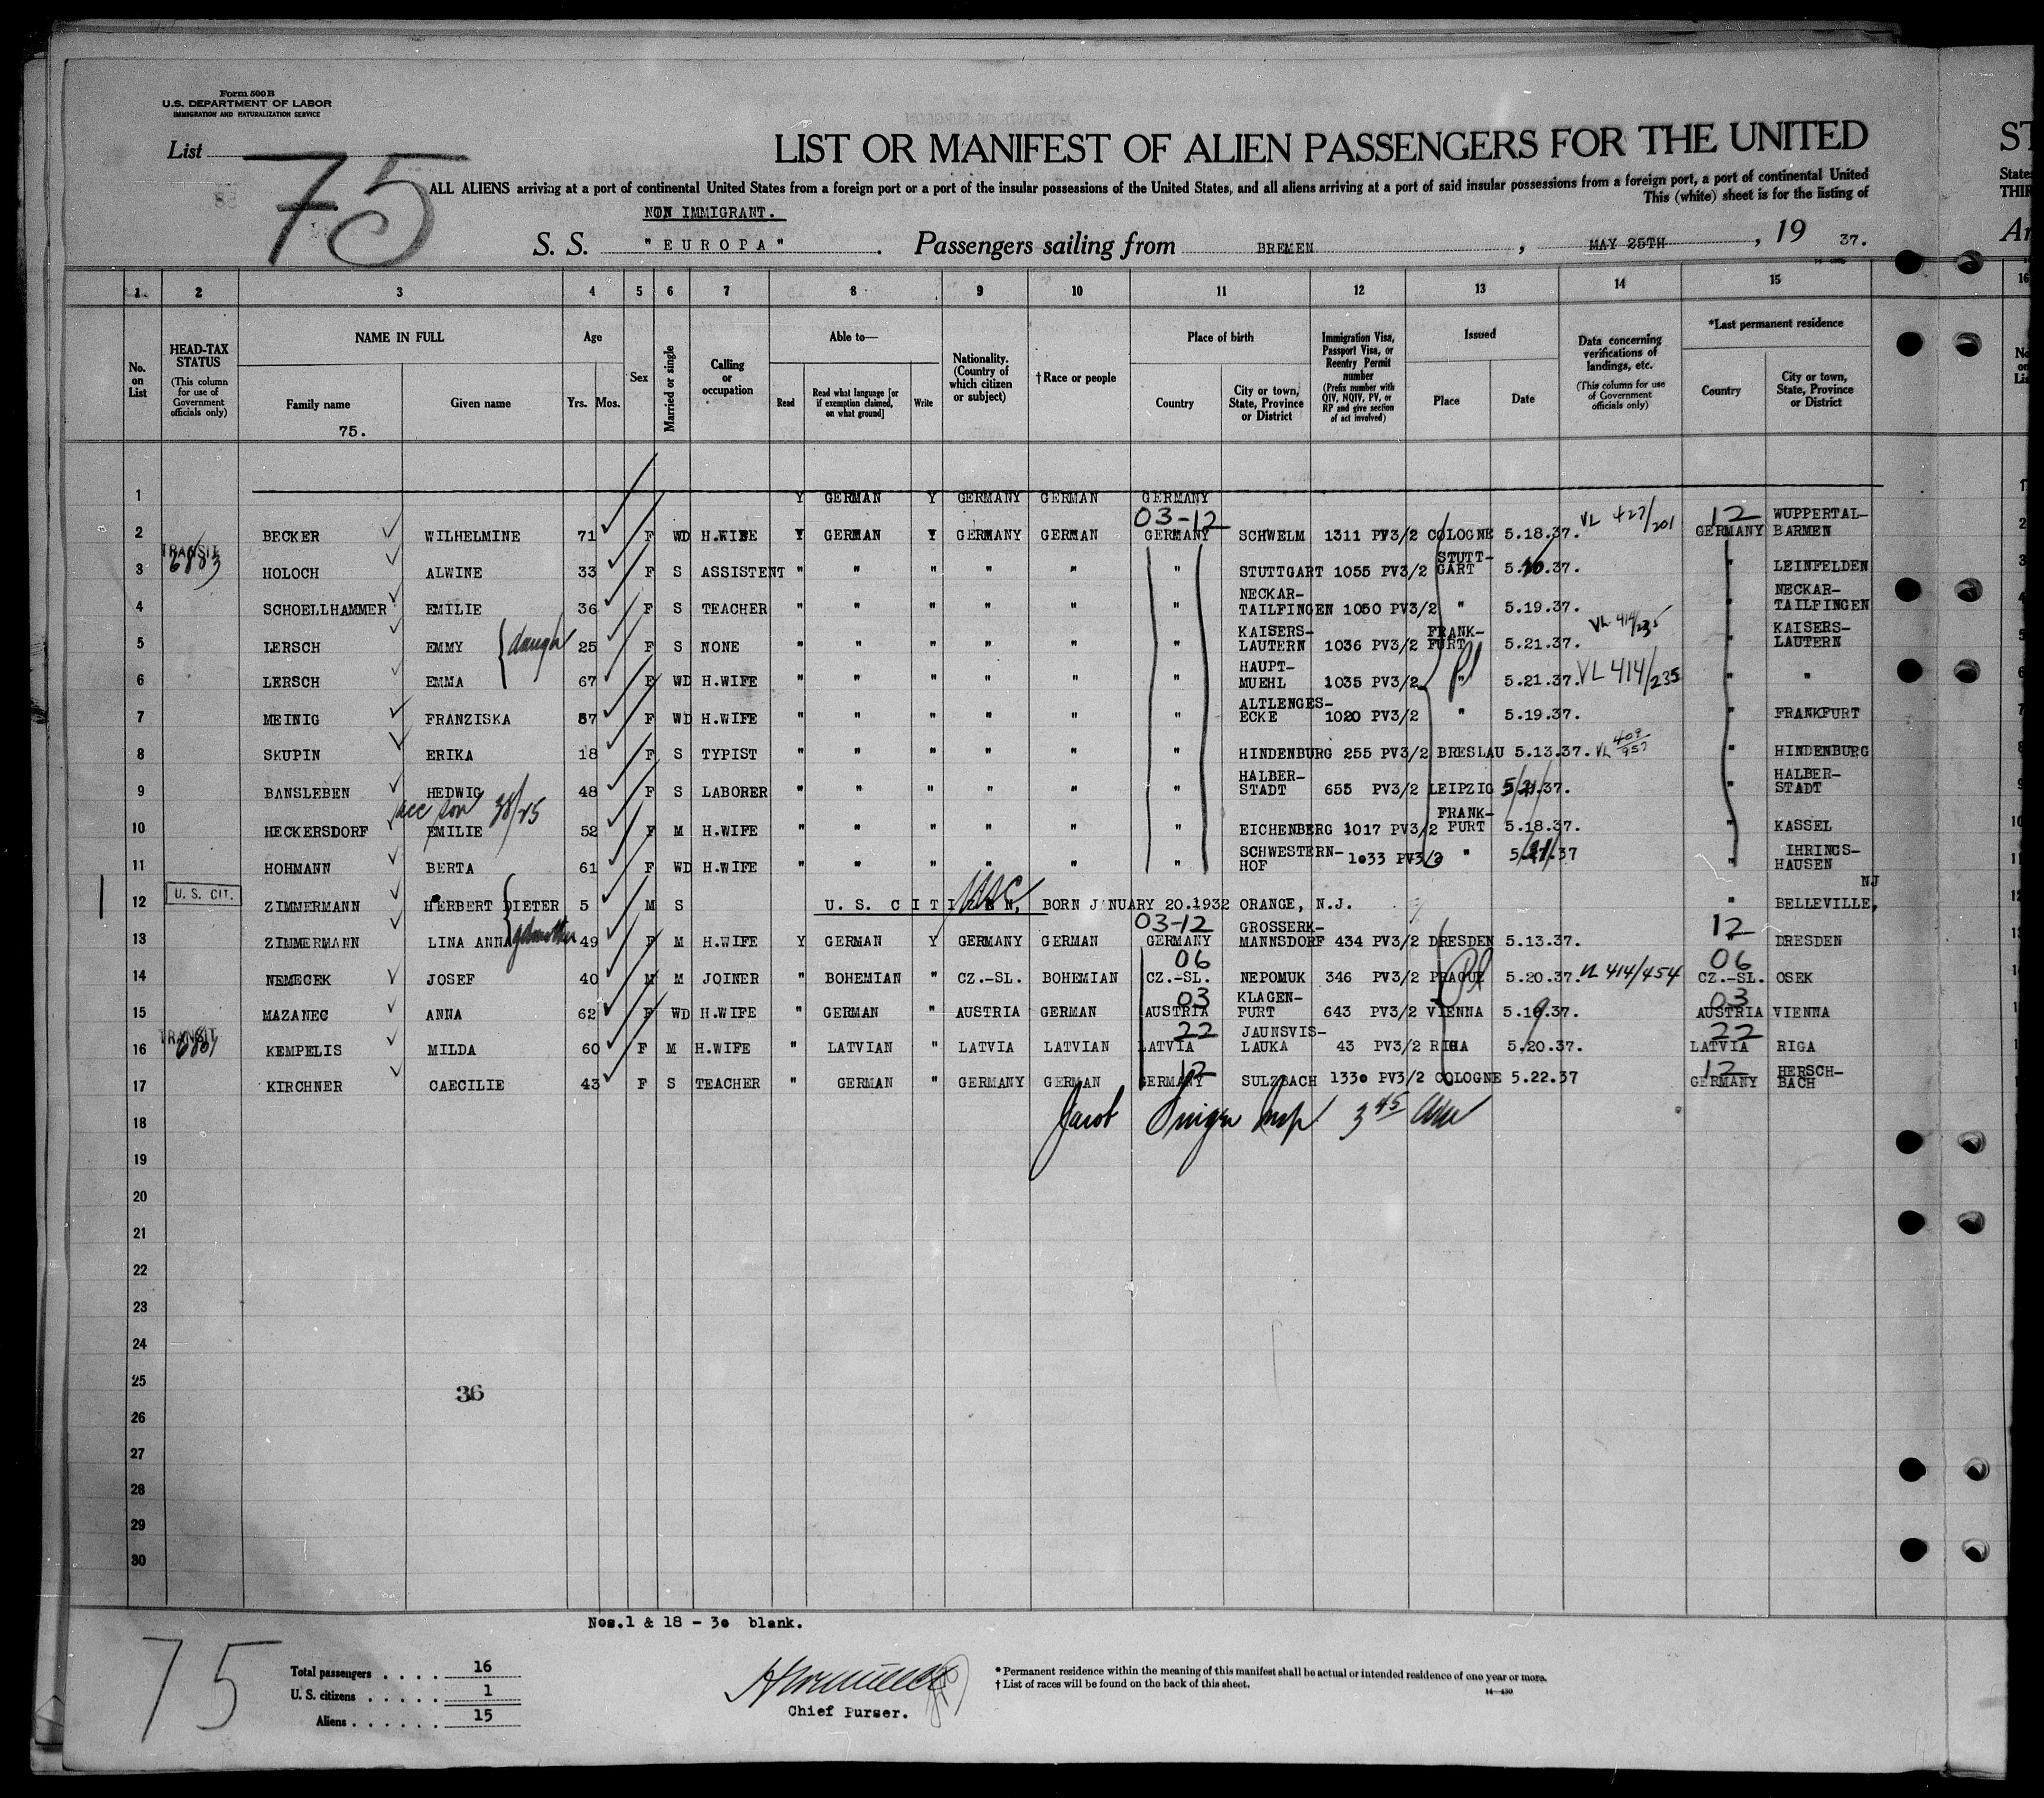 Form 500B
U.S. DEPARTMENT OF LABOR
IMMIGRATION AND NATURALIZATION SERVICE
List 75
LIST OR MANIFEST OF ALIEN PASSENGERS FOR THE UNITED ST
ALL ALIENS arriving at a port of continental United States from a foreign port or a port of the insular possessions of the United States, and all aliens arriving at a port of said insular possessions from a foreign port, a port of continental United States
This (white) sheet is for the listing of THIR
NON IMMIGRANT.
S. S. "EUROPA". Passengers sailing from BREMEN, MAY 25TH, 19 37.
1 2 3 4 5 6 7 8 9 10 11 12 13 14 15 16
No. on List
HEAD-TAX STATUS (This column for use of Government officials only)
NAME IN FULL
Family name Given name
75.
Age
Yrs. Mos.
Sex
Married or single
Calling or occupation
Able to—
Read
Read what language [or if exemption claimed, on what ground]
Write
Nationality. (Country of which citizen or subject)
† Race or people
Place of birth
Country
City or town, State, Province or District
Immigration Visa, Passport Visa, or Reentry Permit number (Prefix number with QIV, NQIV, PV, or RP and give section of act involved)
Issued
Place Date
Data concerning verifications of landings, etc. (This column for use of Government officials only)
*Last permanent residence
Country
City or town, State, Province or District
1 Y GERMAN Y GERMANY GERMAN GERMANY
2 BECKER WILHELMINE 71 F WD H.WIFE Y GERMAN Y GERMANY GERMAN 03-12 GERMANY SCHWELM 1311 PV3/2 COLOGNE 5.18.37. VL 427/201 12 GERMANY WUPPERTAL-BARMEN
3 TRANSIT HOLOCH ALWINE 33 F S ASSISTENT " " " " " " STUTTGART 1055 PV3/2 STUTT-GART 5. .37. " LEINFELDEN
4 SCHOELLHAMMER EMILIE 36 F S TEACHER " " " " " " NECKAR-TAILFINGEN 1050 PV3/2 " 5.19.37. " NECKAR-TAILFINGEN
5 LERSCH EMMY daugh 25 F S NONE " " " " " " KAISERS-LAUTERN 1036 PV3/2 FRANK-FURT 5.21.37. VL 414/235 " KAISERS-LAUTERN
6 LERSCH EMMA 67 F WD H.WIFE " " " " " " HAUPT-MUEHL 1035 PV3/2 " 5.21.37. VL 414/235 " "
7 MEINIG FRANZISKA 57 F WD H.WIFE " " " " " " ALTLENGES-ECKE 1020 PV3/2 " 5.19.37. " FRANKFURT
8 SKUPIN ERIKA 18 F S TYPIST " " " " " " HINDENBURG 255 PV3/2 BRESLAU 5.13.37. VL 409/957 " HINDENBURG
9 BANSLEBEN HEDWIG 48 F S LABORER " " " " " " HALBER-STADT 655 PV3/2 LEIPZIG 5/21.37. " HALBER-STADT
acc son 38/25
10 HECKERSDORF EMILIE 52 F M H.WIFE " " " " " " EICHENBERG 1017 PV3/2 FRANK-FURT 5.18.37. " KASSEL
11 HOHMANN BERTA 61 F WD H.WIFE " " " " " " SCHWESTERN-HOF 1033 PV3/2 " 5.21.37 " IHRINGS-HAUSEN
12 U. S. CIT. ZIMMERMANN HERBERT DIETER 5 M S U. S. CITIZEN, BORN JANUARY 20.1932 ORANGE, N.J. " BELLEVILLE, NJ
13 ZIMMERMANN LINA ANNA gdmother 49 F M H.WIFE Y GERMAN Y GERMANY GERMAN 03-12 GERMANY GROSSERK-MANNSDORF 434 PV3/2 DRESDEN 5.13.37. 12 " DRESDEN
14 NEMECEK JOSEF 40 M M JOINER " BOHEMIAN " CZ.-SL. BOHEMIAN 06 CZ.-SL. NEPOMUK 346 PV3/2 PRAGUE 5.20.37. VL 414/454 06 CZ.-SL. OSEK
15 MAZANEC ANNA 62 F WD H.WIFE " GERMAN " AUSTRIA GERMAN 03 AUSTRIA KLAGEN-FURT 643 PV3/2 VIENNA 5.19.37. 03 AUSTRIA VIENNA
16 TRANSIT KEMPELIS MILDA 60 F M H.WIFE " LATVIAN " LATVIA LATVIAN 22 LATVIA JAUNSVIS-LAUKA 43 PV3/2 RIGA 5.20.37. 22 LATVIA RIGA
17 KIRCHNER CAECILIE 43 F S TEACHER " GERMAN " GERMANY GERMAN 12 GERMANY SULZBACH 1330 PV3/2 COLOGNE 5.22.37 12 GERMANY HERSCH-BACH
18 Jacob Insp 3 45
19
20
21
22
23
24
25
36
26
27
28
29
30
Nos.1 & 18 - 30 blank.
75
Total passengers . . . . 16
U. S. citizens . . . . . 1
Aliens . . . . . . 15
Chief Purser.
* Permanent residence within the meaning of this manifest shall be actual or intended residence of one year or more.
† List of races will be found on the back of this sheet.
14—430